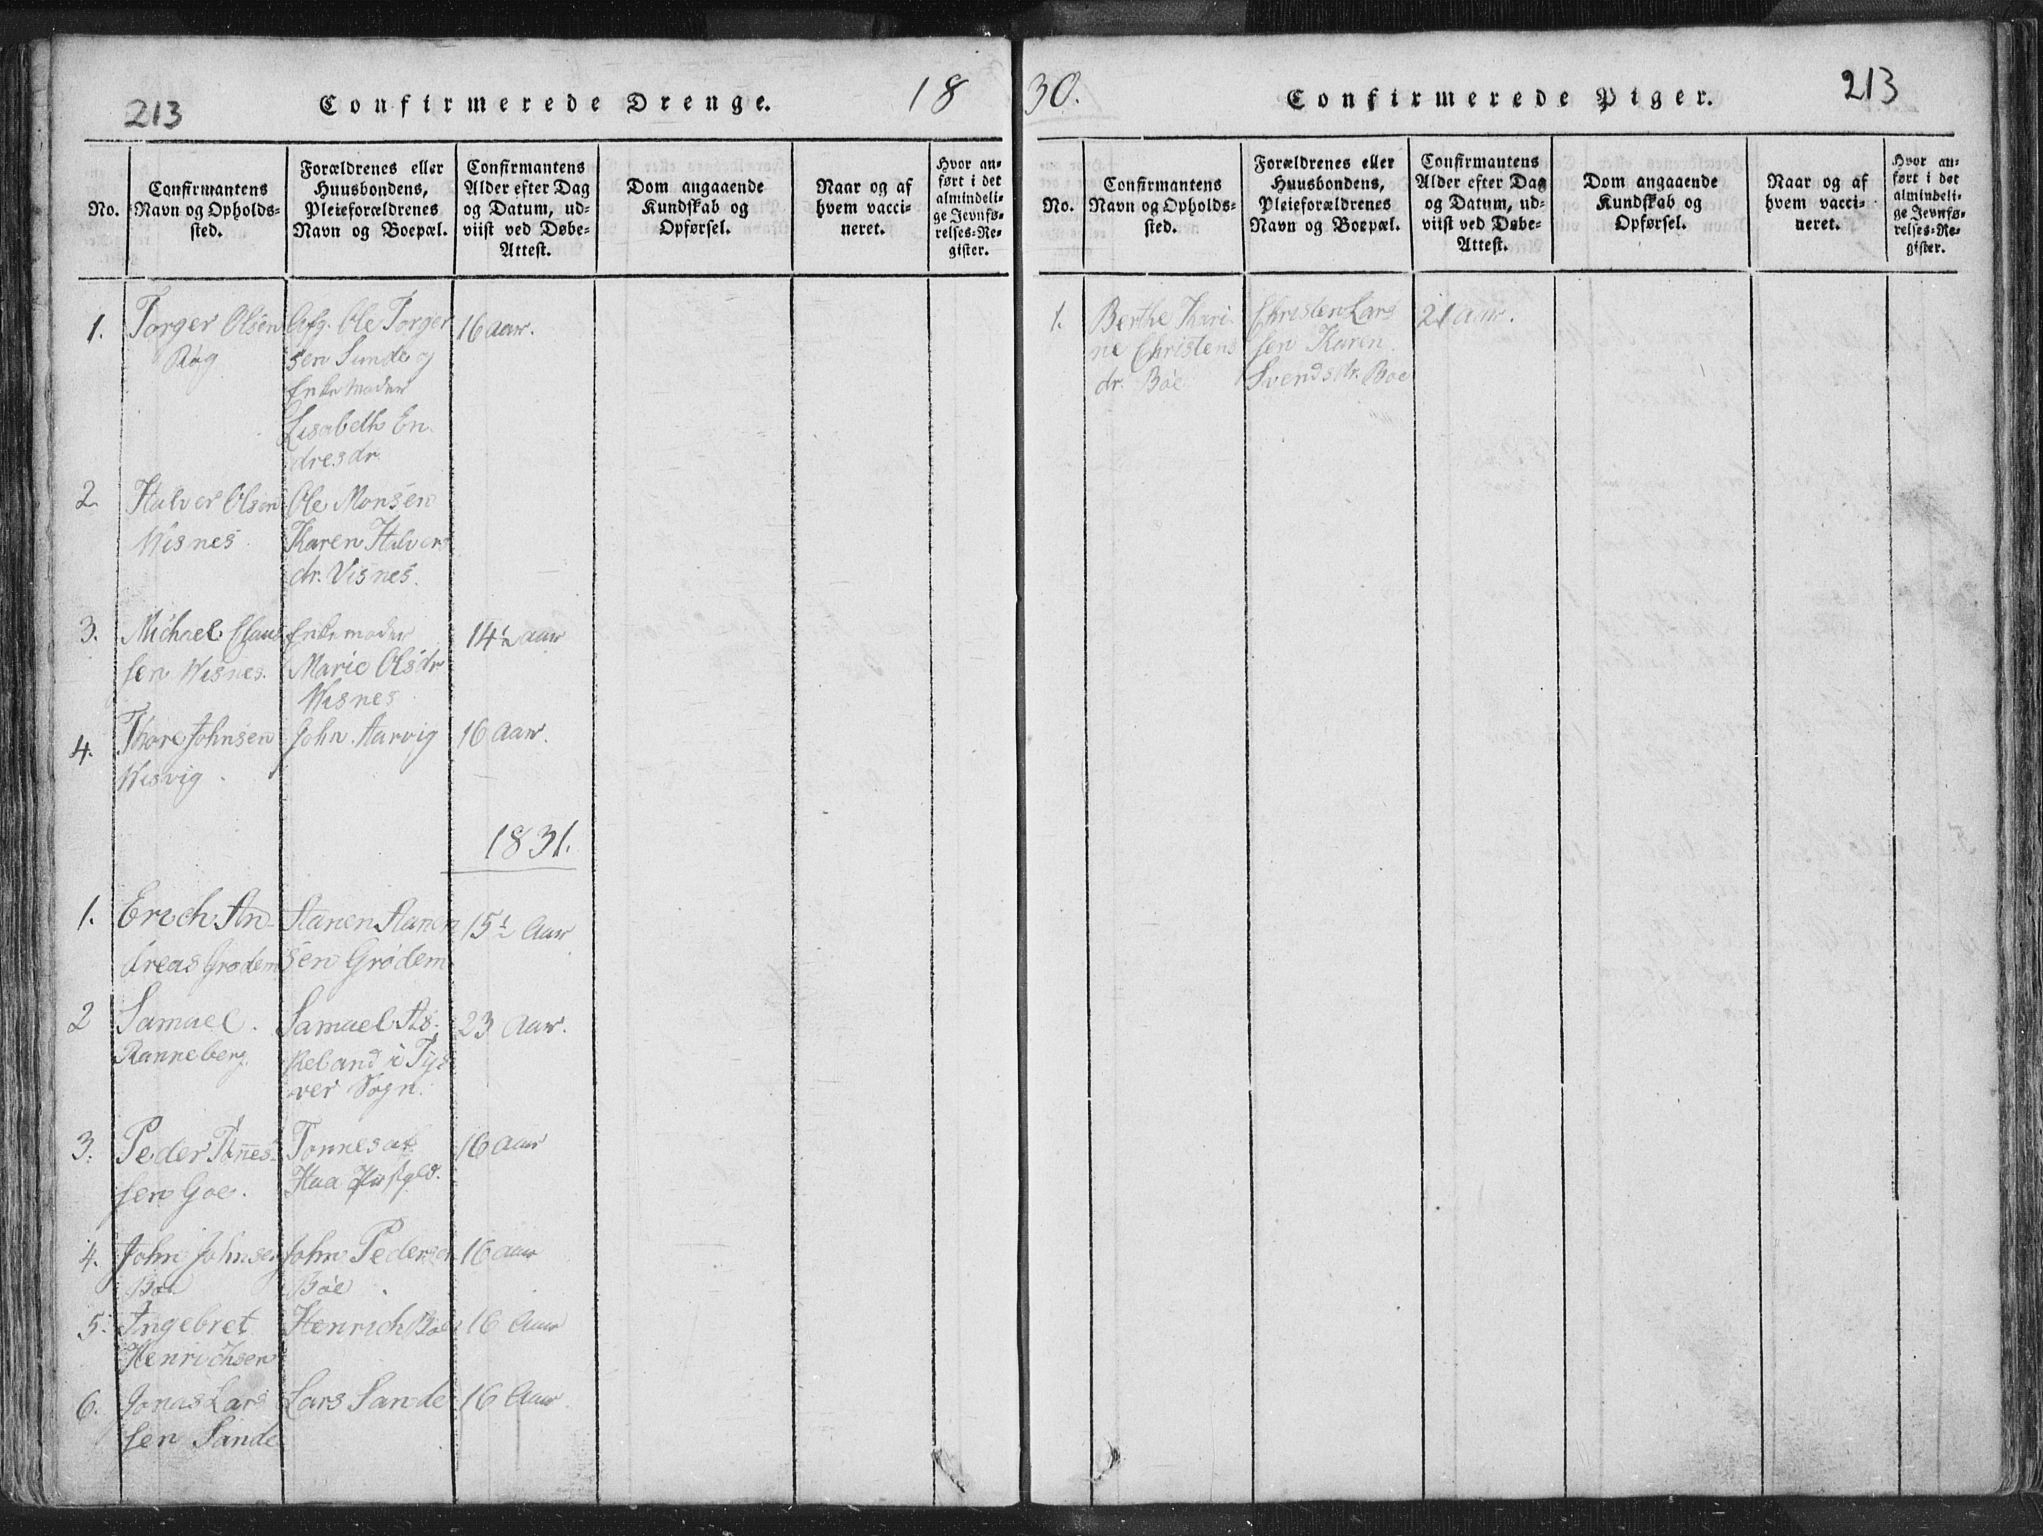 213
Confirmerede Drenge.
18
No.
Confirmantens
Navn og Opholds-
sted.
Forældrenes eller
Huusbondens,
Pleieforældrenes
Navn og Boepæl.
Confirmantens
Alder efter Dag
og Datum, ud-
viist ved Døbe-
Attest.
Dom angaaende
Kundskab og
Opførsel.
Naar og af
hvem vacci-
neret.
Hvor an-
ført i det
almindeli-
ge Jevnfø-
relses-Re-
gister.
1.
Torger Olsen
Røg
Afg. Ole Torger
sen Sunde og
Enke Moder
Lisabeth En
dresdr
16 aar.
2
Halver Olsen
Wisnes
Ole Monsen
Karen Halvers
dr. Visnes.
3.
Michael Claus
sen Wisnes.
Enke moder
Marie Olsdr
Wisnes
14½ aar
4.
Thore Johnsen
Wisvig
John Aarvig
16 Aar.
1831.
1.
Erich An-
dreas Grødem
Hanen Hanen
sen Grødem
15½ Aar
2
Samuel.
Ranneberg.
Samuel As-
keland i Tys
ver Sogn.
23 Aar.
3.
Peder Tønnes-
sen Goe.
Tonnes
Haa
16 Aar
4.
John Johnsen
Boe
John Pedersen
Bøe
16 aar
5.
Ingebret
Henrichsen
Henrich Boe
16 Aar
6.
Jonas Lars
sen Sande
Lars Sande
16 Aar.
30.
Confirmerede Piger.
213
No.
Confirmantens
Navn og Opholds-
sted.
Forældrenes eller
Huusbondens,
Pleieforældrenes
Navn og Boepæl.
Confirmantens
Alder efter Dag
og Datum, ud-
viist ved Døbe-
Attest.
Dom angaaende
Kundskab og
Opførsel.
Naar og af
hvem vacci-
neret.
Hvor an-
ført i det
almindeli-
ge Jevnfø-
relses-Re-
gister.
1.
Berthe Kari-
ne Christens
dr. Bøe
Christen Lars
sen Karen
Svendsdr. Boe
21 aar.